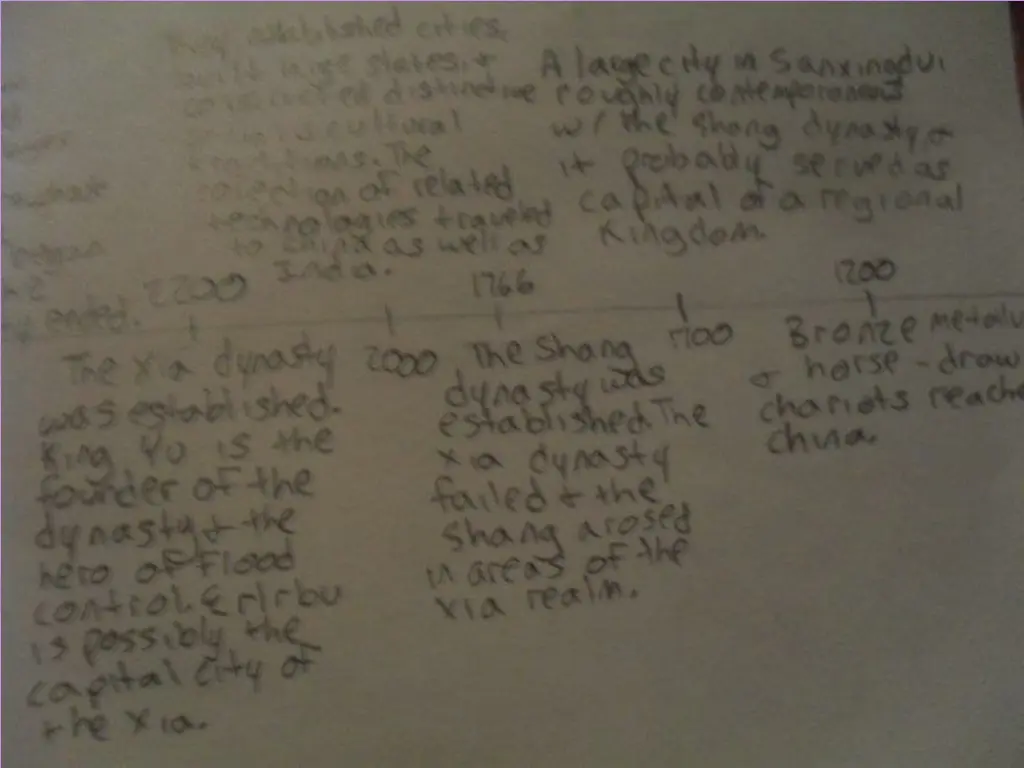 established cities.
built large states, +
distinctive
cultural
traditions. The
collection of related
technologies traveled
to China as well as
India.
A large city in Sanxingdui
roughly contemporaneous
w/ the Shang dynasty +
it probably served as
capital of a regional
Kingdom.
ended.
2200
1766
1200
The Xia dynasty
was established.
King Yu is the
founder of the
dynasty + the
hero of flood
control. Erlrbu
is possibly the
capital city of
the Xia.
2000
The Shang
dynasty was
established. The
Xia dynasty
failed + the
Shang arosed
in areas of the
Xia realm.
1700
Bronze metalu
+ horse-draw
chariots reache
china.